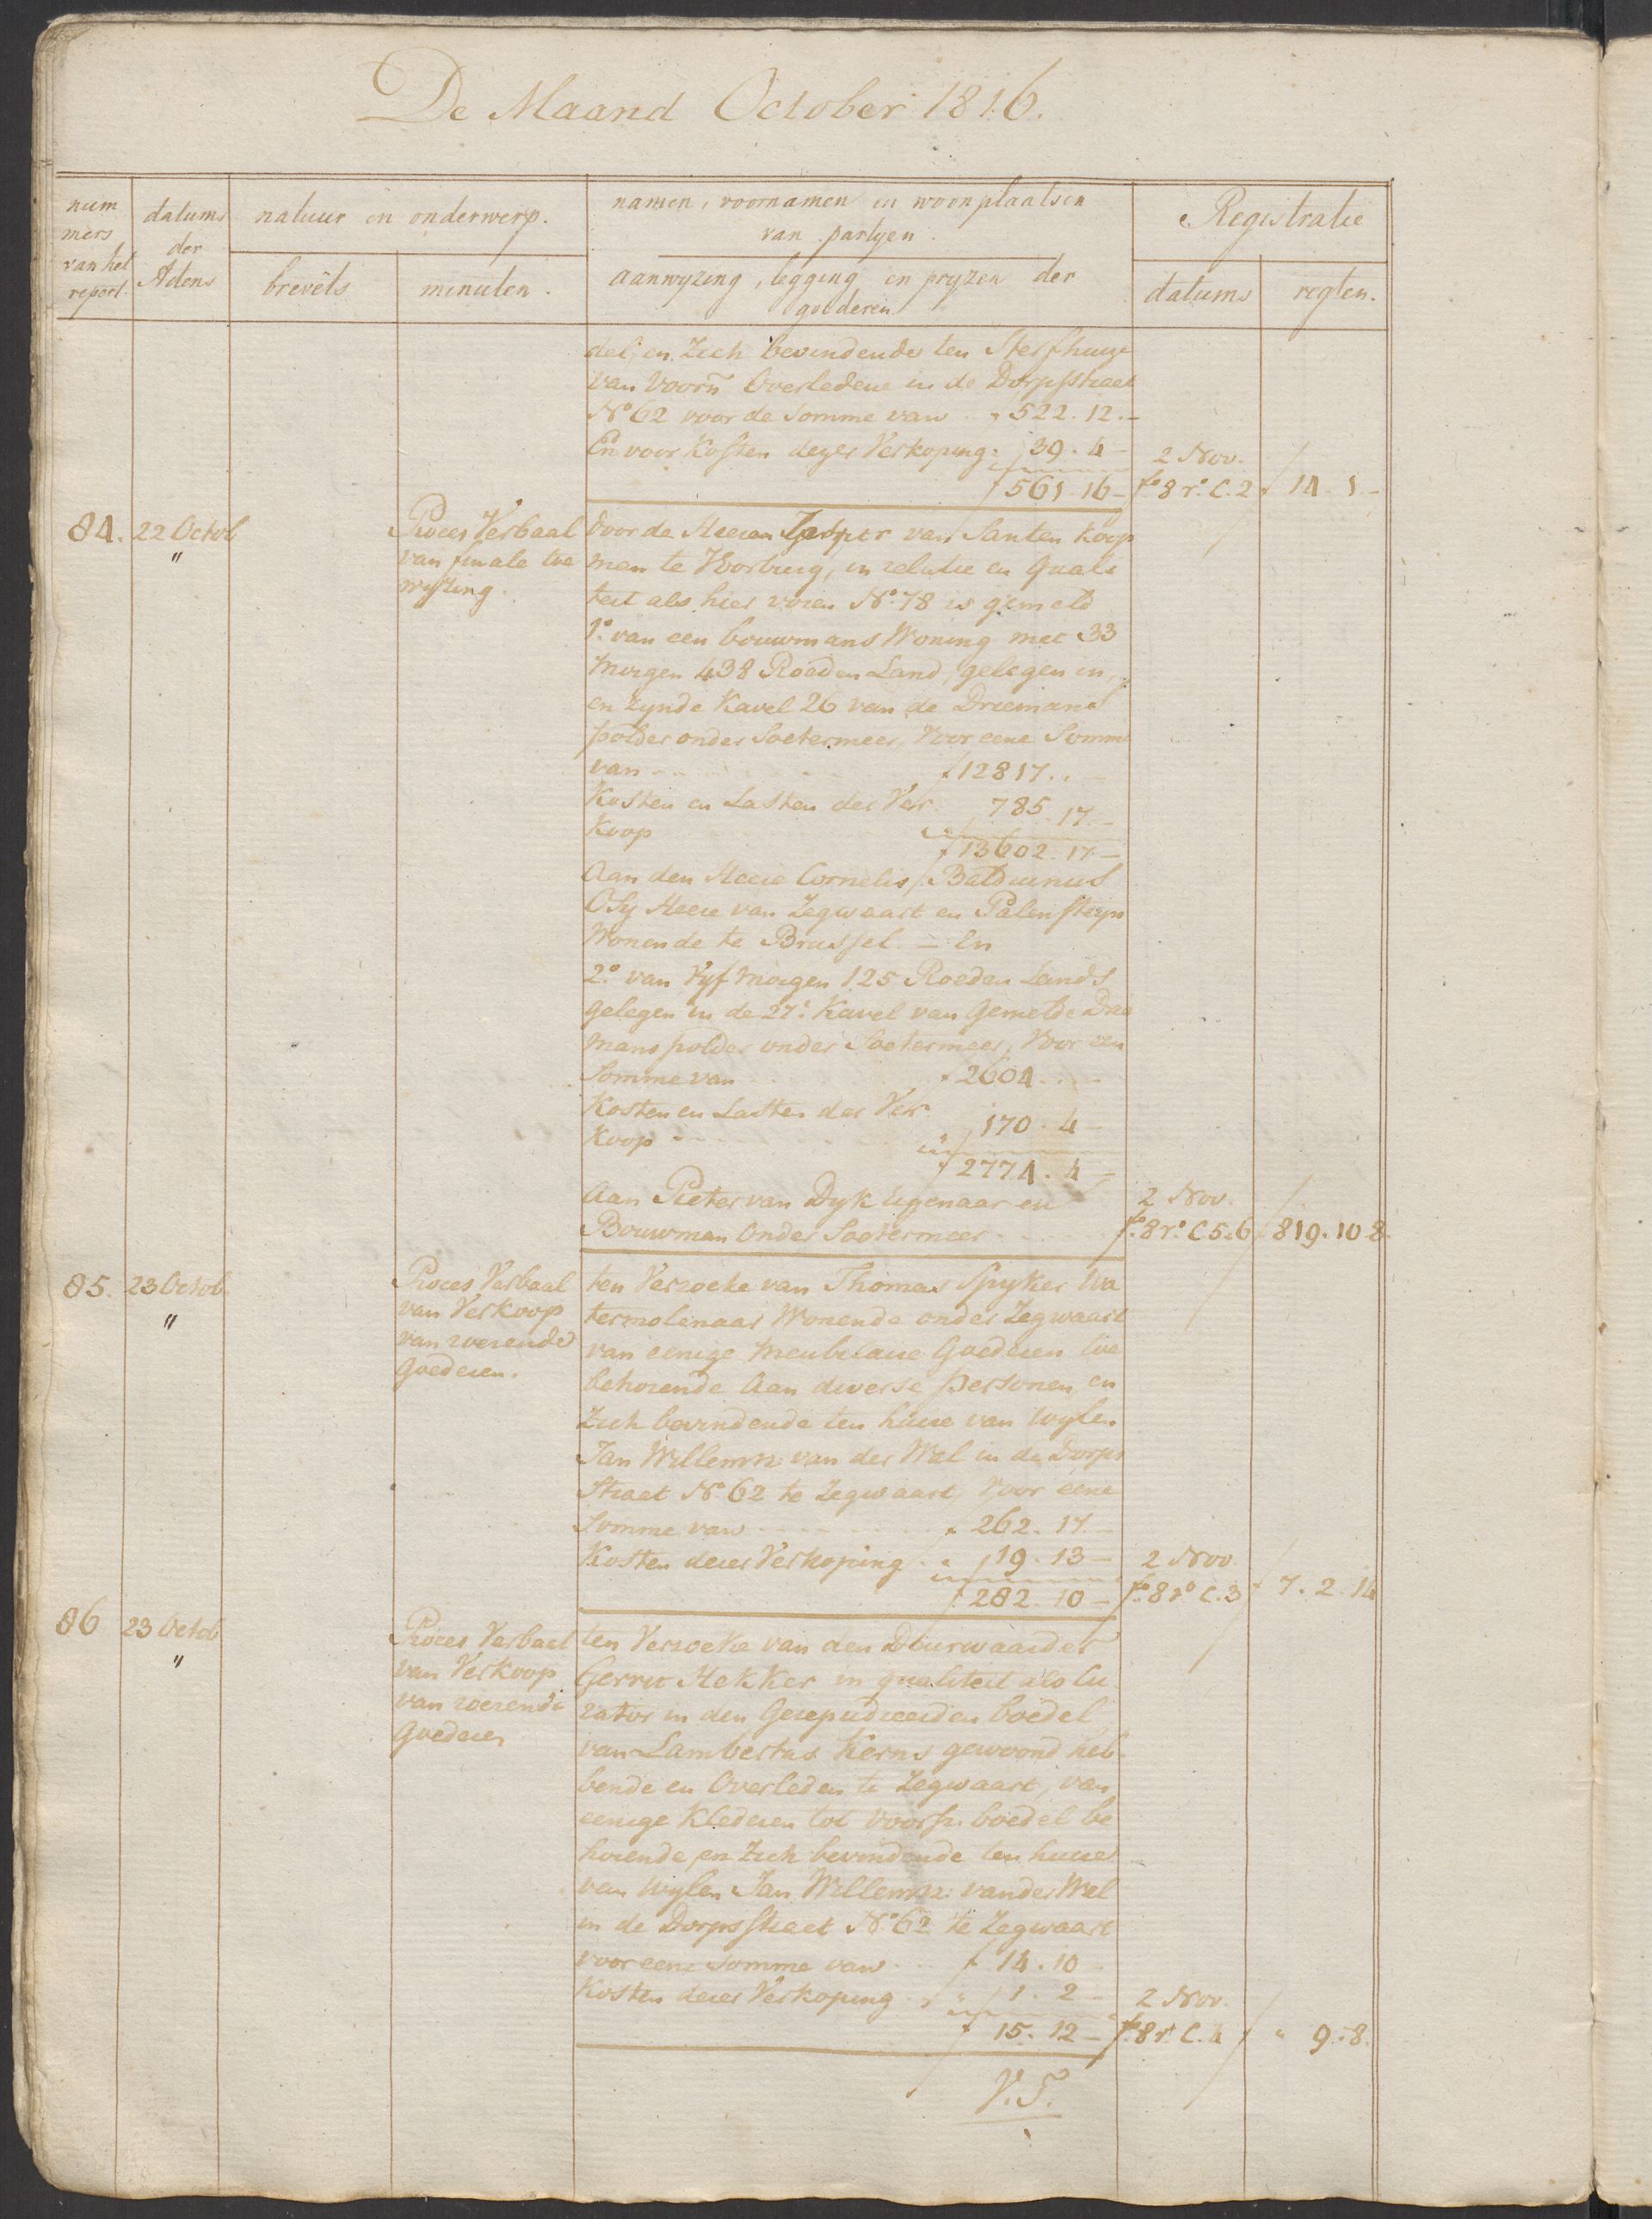 De Maand October 1816.
num
mers
van het
repert.
datums
der
Actens
natuur en onderwerp.
brevêts
minuten.
namen, voornamen en woonplaatsen
van partyen.
aanwyzing, legging en pryzen der
goederen
Registratie
datums
regten.
del, en Zich bevindende ten Sterfhuize
van Voorn Overledene in de Dorpsstraat
No 62 voor de Somme van " 522. 12. –
En voor Kosten dezer Verkoping. 39. 4 –
2 Nov.
f 561. 16 –
fo 8 ro. C. 2 f 14. 1 –
84. 22 Octob
"
Proces Verbaal
van finale toe
wyzing.
door de Heeren Jasper van Santen Koop
man te Voorburg, in relatie en Quali
teit als hier voren No. 78 is gemeld
1o. van een bouwmans Woning met 33
Morgen 438 Roeden Land, gelegen in,
en zynde Kavel 26 van de Driemans
polder onder Soetermeer, Voor eene Somme
van - - f 12817. . –
Kosten en Lasten der Ver
Koop 785. 17 –
f 13602. 17 –
Aan den Heere Cornelis Balduinus
Osy Heere van Zegwaart en Palensteyn
Wonende te Brussel. – En
2o. van Vyf Morgen 125 Roeden Lands
gelegen in de 27e. Kavel van Gemelde Drie
mans polder onder Soetermeer, Voor een
Somme van f 2604. . –
Kosten en Lasten der Ver
Koop - - 170. 4 –
f 2774. 4 –
Aan Pieter van Dyk Eigenaar en
Bouwman Onder Soetermeer
2 Nov.
fo. 8 ro. C 5. 6 f 819. 10. 8.
85. 23 Octob.
"
Proces Verbaal
van Verkoop
van roerende
Goederen.
ten Verzoeke van Thomas Spyker Wa
termolenaar Wonende onder Zegwaart
van eenige Meubilaire Goederen toe
behorende Aan diverse personen, en
Zich bevindende ten huize van Wylen
Jan Willemsz. van der Wal in de Dorps
Straat No. 62 te Zegwaart, Voor eene
Somme van f 262. 17 –
Kosten dezer Verkoping. " 19. 13 –
2 Nov.
f 282. 10 –
fo. 8 ro C. 3 f 7. 2. 14
86 23 Octob
"
Proces Verbaal
van Verkoop
van roerende
Goederen
ten Verzoeke van den Deurwaarder
Gerrit Hekker in qualiteit als Cu
rator in den Gerepudieerden boedel
van Lambertus Kerns gewoond heb
bende en Overleden te Zegwaart, van
eenige Klederen tot voorsz. boedel be
horende, en Zich bevindende ten huize
van Wylen Jan Willemsz. van der Wal
in de Dorpsstraat No. 62 te Zegwaart
voor eene Somme van f 14. 10
Kosten dezer Verkoping " 1. 2 –
2 Nov.
f 15. 12 –
fo. 8 ro. C. 4 f " 9. 8.
V. T.